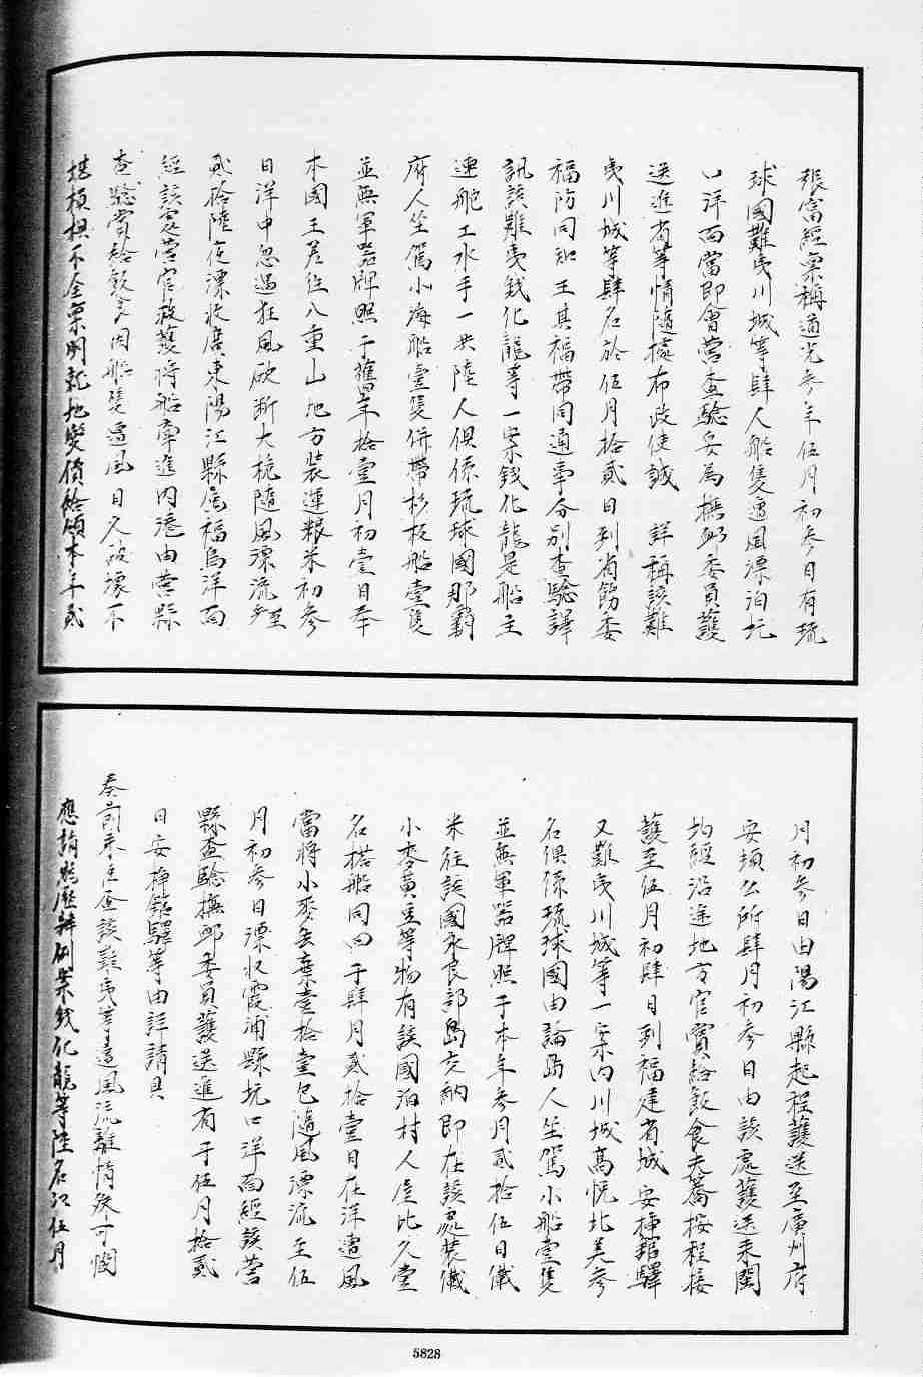 張富經稟稱道光參年伍月初參日有琉
球國難夷川城等肆人船隻遭風漂泊坑
口洋面當即會營查驗妥為撫邮委員護
送進省等情隨據布政使誠 詳稱該難
夷川城等肆名於伍月拾貳日到省飭委
福防同知王其福帶同通事分別查驗譯
訊該難夷錢化龍等一案錢化龍是船主
連舵工水手一共陸人俱係琉球國那霸
府人坐駕小海船壹隻併帶杉板船壹隻
並無軍器牌照于舊年拾壹月初壹日奉
本國王差往八重山地方裝運粮米初參
日洋中忽遇狂風砍斷大桅隨風漂流至
貳拾陸夜漂收廣東陽江縣屬福烏洋面
經該處營官救護將船牽進內港由營縣
查驗賞給飲食因船隻遭風日久破壞不
堪槓棋不全稟明就地變價給領本年貳
月初參日由陽江縣起程護送至廣州府
安頓公所肆月初參日由該處護送來閩
均經沿途地方官賞給飯食夫蕎按程接
護至伍月初肆日到福建省城 安插館驛
又難夷川城等一案內川城高悅比美參
名俱係琉球國由論島人坐駕小船壹隻
並無軍器牌照于本年參月貳拾伍日儎
米往該國永良部島交納即在該處裝儎
小麥黃豆等物有該國泊村人屋比久壹
名搭船同回于肆月貳拾壹日在洋遭風
當將小麥丟棄壹拾壹包隨風漂流至伍
月初參日漂收霞浦縣坑口洋面經該營
縣查驗撫邮委員護送進省于伍月拾貳
日安插館驛等由詳請具
奏前來臣查該難夷等遭風流離情殊可憫
應請照歷辦例案錢化龍等陸名以伍月
5828